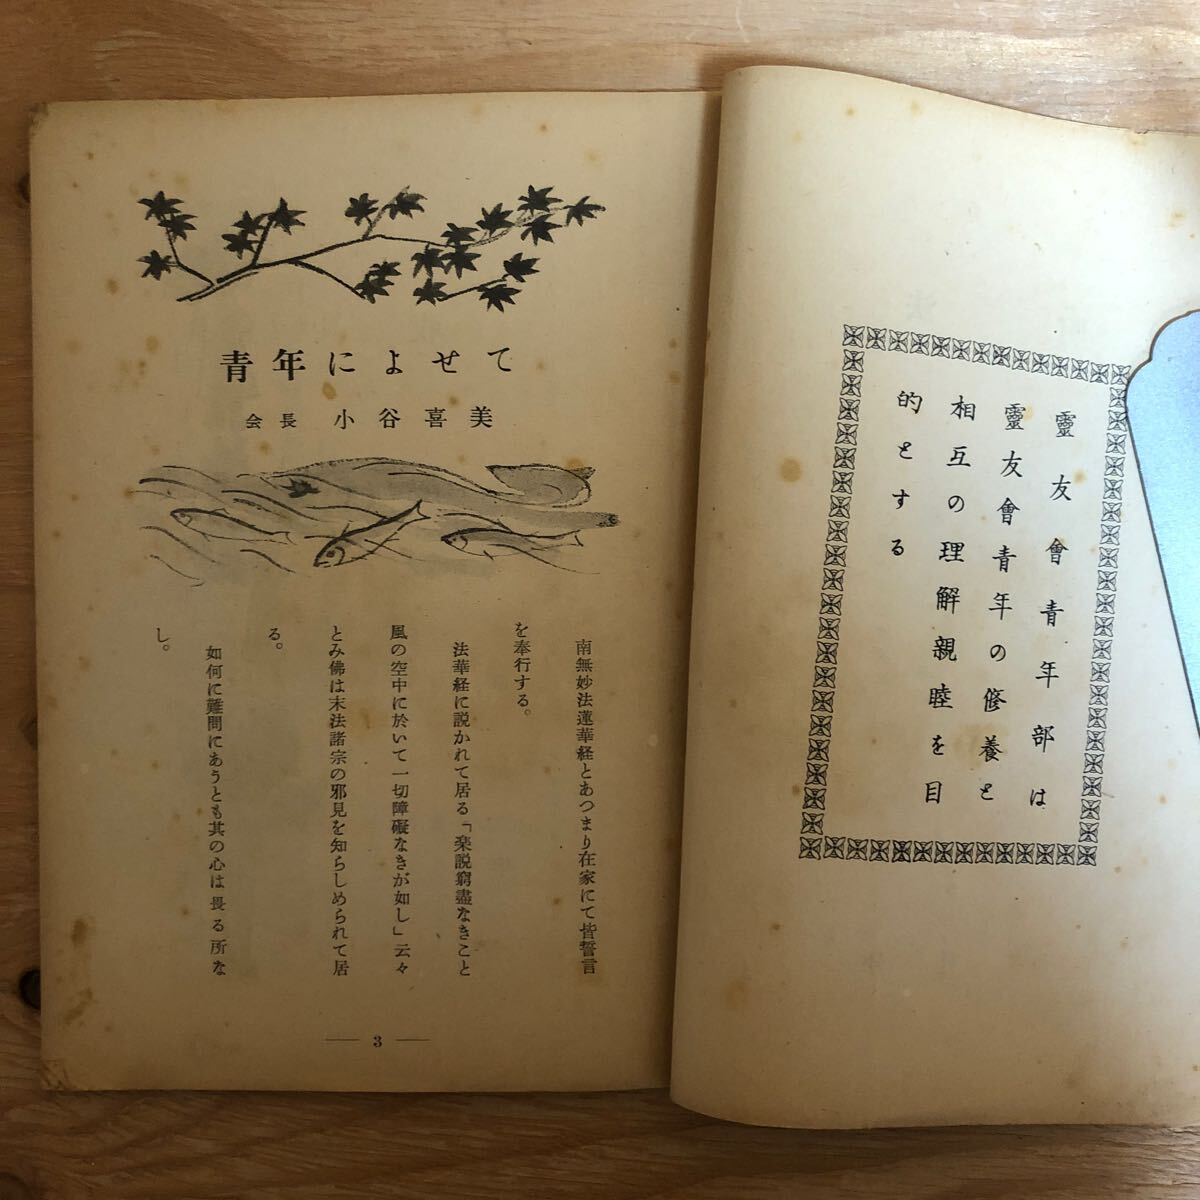 靈友會青年部は
靈友會青年の修養と
相互の理解親睦を目
的とする
青年によせて
会長 小谷喜美
南無妙法蓮華経とあつまり在家にて皆誓言
を奉行する。
法華経に説かれて居る「楽説窮盡なきこと
風の空中に於いて一切障礙なきが如し」云々
とみ佛は末法諸宗の邪見を知らしめられて居
る。
如何に難問にあうとも其の心は畏る所な
し。
— 3 —